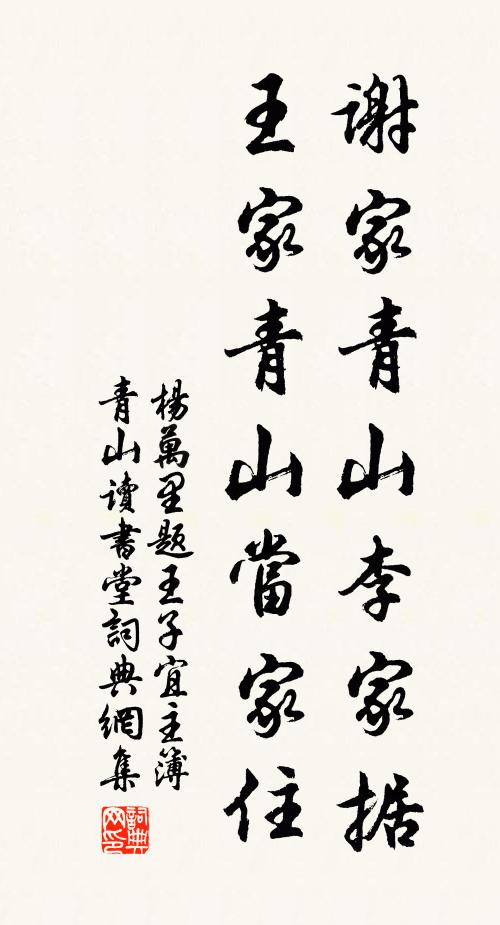 謝家青山李家据
王家青山當家住
楊萬里題王子宜主簿
青山讀書堂詞典網集
詞典
网印